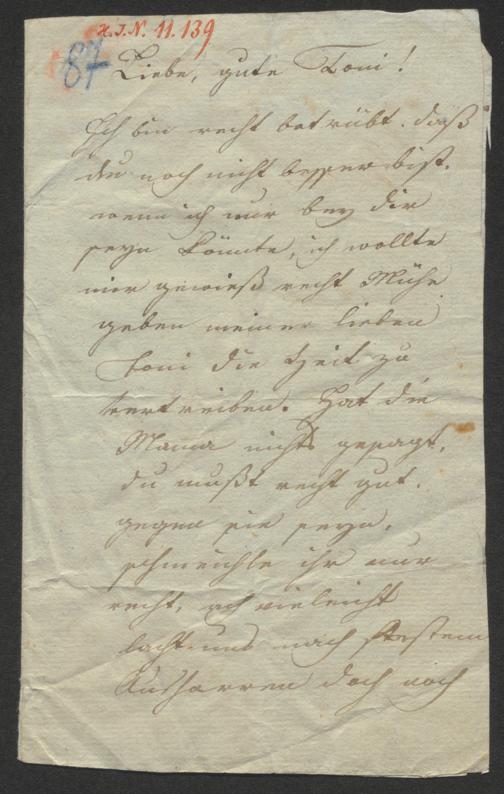 H.I.N. 11.139
87
Liebe, gute Toni!
Ich bin recht betrübt. daß
du noch nicht besser bist.
wenn ich nur bey dir
seyn könnte, ich wollte
mir gewieß recht Mühe
geben meiner lieben
Toni die Zeit zu
vertreiben. Hat die
Mama nichts gesagt,
du mußt recht gut.
gegen sie seyn.
schmeichle ihr nur
recht, ach vieleicht
lacht uns nach festem
Ausharren doch noch